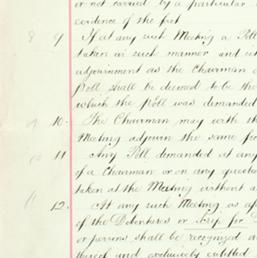 or not carried by a particular
evidence of the fact
8 9 If at any such Meeting a Poll
taken in such manner and
adjournment as the Chairman
Poll shall be deemed to be the
which the Poll was demanded
9 10. The Chairman may with th
Meeting adjourn the same fr
10 11 Any Poll demanded at any
of a Chairman or on any question
taken at the Meeting without a
11 12. At any such Meeting as af
of the Debentures or Scrip for
or persons shall be recognized a
thereof and exclusively entitled